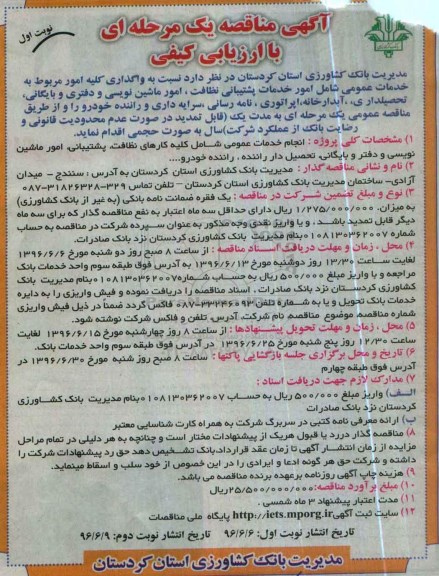 نوبت اول
آگهی مناقصه یک مرحله ای
با ارزیابی کیفی
مدیریت بانک کشاورزی استان کردستان در نظر دارد نسبت به واگذاری کلیه امور مربوط به
خدمات عمومی شامل امور خدمات پشتیبانی نظافت ، امور ماشین نویسی و دفتری و بایگانی،
تحصیلداری ، آبدارخانه، اپراتوری ، نامه رسانی ،سرایه داری و راننده خودرو را و از طریق
مناقصه عمومی یک مرحله ای به مدت یک (قابل تمدید در صورت عدم محدودیت قانونی و
رضایت بانک از عملکرد شرکت)سال به صورت حجمی اقدام نماید.
۱) مشخصات کلی پروژه : انجام خدمات عمومی شامل کلیه کارهای نظافت، پشتیبانی، امور ماشین
نویسی و دفتر و بایگانی، تحصیل دار راننده ، راننده خودرو....
۲) نام و نشانی مناقصه گذار : مدیریت بانک کشاورزی استان کردستان به آدرس : سنندج - میدان
آزادی- ساختمان مدیریت بانک کشاورزی استان کردستان – تلفن تماس ۳۲۹-۳۱۸۲۶۳۲۸-۰۸۷
۳) نوع و مبلغ تضمین شرکت در مناقصه : یک فقره ضمانت نامه بانکی (به غیر از بانک کشاورزی)
به میزان ۱/۲۷۵/۰۰۰/۰۰۰ ریال دارای حداقل سه ماه اعتبار به نفع مناقصه گذار که برای سه ماه
دیگر قابل تمدید باشد. و یا واریز نقدی وجه مذکور به عنوان سپرده شرکت در مناقصه به حساب
شماره ۰۱۰۸۱۳۰۳۶۲۰۰۷ بنام مدیریت بانک کشاورزی کردستان نزد بانک صادرات.
۴) محل ، زمان و مهلت دریافت اسناد مناقصه : از ساعت ۸ صبح روز دو شنبه مورخ ۱۳۹۶/۶/۶
لغایت ساعت ۱۳/۳۰ روز دوشنبه مورخ ۱۳۹۶/۶/۱۳ به آدرس فوق طبقه سوم واحد خدمات بانک
مراجعه و با واریز مبلغ ۵۰۰/۰۰۰ ریال به حساب شماره ۰۱۰۸۱۳۰۳۶۲۰۰۷ بنام مدیریت بانک
کشاورزی کردستان نزد بانک صادرات ، اسناد مناقصه را دریافت نموده و فیش واریزی را به دایره
خدمات بانک تحویل و یا به شماره تلفن ۳۳۲۴۶۰۹۳-۰۸۷ فاکس گردد ضمنا در ذیل فیش واریزی
شماره مناقصه، موضوع مناقصه، نام شرکت، آدرس، تلفن و فاکس شرکت نوشته شود.
۵) محل ، زمان و مهلت تحویل پیشنهادها : از ساعت ۸ روز چهارشنبه مورخ ۱۳۹۶/۶/۱۵ لغایت
ساعت ۱۲/۳۰ روز پنج شنبه مورخ ۱۳۹۶/۶/۲۵ در آدرس فوق طبقه سوم واحد خدمات بانک.
۶) تاریخ و محل برگزاری جلسه بازگشایی پاکتها : ساعت ۸ صبح روز شنبه مورخ ۱۳۹۶/۶/۳۰ در
آدرس فوق طبقه چهارم
۷) مدارک لازم جهت دریافت اسناد :
الف) واریز مبلغ ۵۰۰/۰۰۰ ریال به حساب ۰۱۰۸۱۳۰۳۶۲۰۰۷ بنام مدیریت بانک کشاورزی
کردستان نزد بانک صادرات
ب) ارائه معرفی نامه کتبی در سربرگ شرکت به همراه کارت شناسایی معتبر
۸) مناقصه گذار در رد یا قبول هریک از پیشنهادات مختار است و چنانچه به هر دلیلی در تمام مراحل
مزایده از زمان انتشار آگهی تا زمان عقد قرارداد،بانک تشخیص دهد حق رد پیشنهادات شرکت را
داشته و شرکت حق هر گونه ادعا و ایرادی را در این خصوص از خود سلب و اسقاط مینماید.
۹) هزینه چاپ آگهی روزنامه برعهده برنده مناقصه می باشد.
۱۰) مبلغ برآورد مناقصه: ۲۵/۵۰۰/۰۰۰/۰۰۰ریال
۱۱) مدت اعتبار پیشنهاد ۳ ماه شمسی .
۱۲) سایت ثبت آگهی http://iets.mporg.ir پایگاه ملی مناقصات
تاریخ انتشار نوبت اول: ۹۶/۶/۶ تاریخ انتشار نوبت دوم: ۹۶/۶/۹
مدیریت بانک کشاورزی استان کردستان